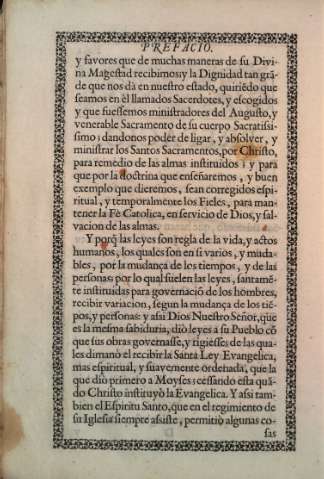 PREFACIO.
y favores que de muchas maneras de su Divi-
na Magestad recibimos, y la Dignidad tan grã-
de que nos dà en nuestro estado, quiriẽdo que
seamos en èl llamados Sacerdotes, y escogidos
y que fuessemos ministradores del Augusto, y
venerable Sacramento de su cuerpo Sacratissi-
simo: dandonos poder de ligar, y absolver, y
ministrar los Santos Sacramentos, por Christo,
para remedio de las almas instituidos: y para
que por la doctrina que enseñaremos, y buen
exemplo que dieremos, sean corregidos espi-
ritual, y temporalmente los Fieles, para man-
tener la Fè Catolica, en servicio de Dios, y sal-
vacion de las almas.
Y porq̃ las leyes son regla de la vida, y actos
humanos, los quales son en si varios, y muda-
bles, por la mudança de los tiempos, y de las
personas: por lo qual suelen las leyes, santamẽ-
te instituidas para governaciõ de los hombres,
recibir variacion, segun la mudança de los tiẽ-
pos, y personas: y assi Dios Nuestro Señor, que
es la mesma sabiduria, diò leyes a su Pueblo cõ
que sus obras governasse, y rigiesse; de las qua-
les dimanò el recibir la Santa Ley Evangelica,
mas espiritual, y suavemente ordenada, que la
que diò primero a Moyses: cessando esta quã-
do Christo instituyò la Evangelica. Y assi tam-
bien el Espiritu Santo, que en el regimiento de
su Iglesia siempre assiste, permitiò algunas co-
sas